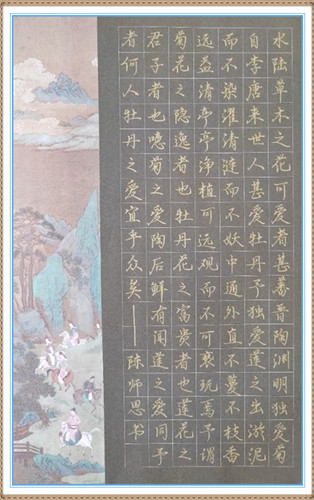 水陆草木之花可爱者甚蕃晋陶渊明独爱菊
自李唐来世人甚爱牡丹予独爱莲之出淤泥
而不染濯清涟而不妖中通外直不蔓不枝香
远益清亭亭净植可远观而不可亵玩焉予谓
菊花之隐逸者也牡丹花之富贵者也莲花之
君子者也噫菊之爱陶后鲜有闻莲之爱同予
者何人牡丹之爱宜乎众矣——陈师思书